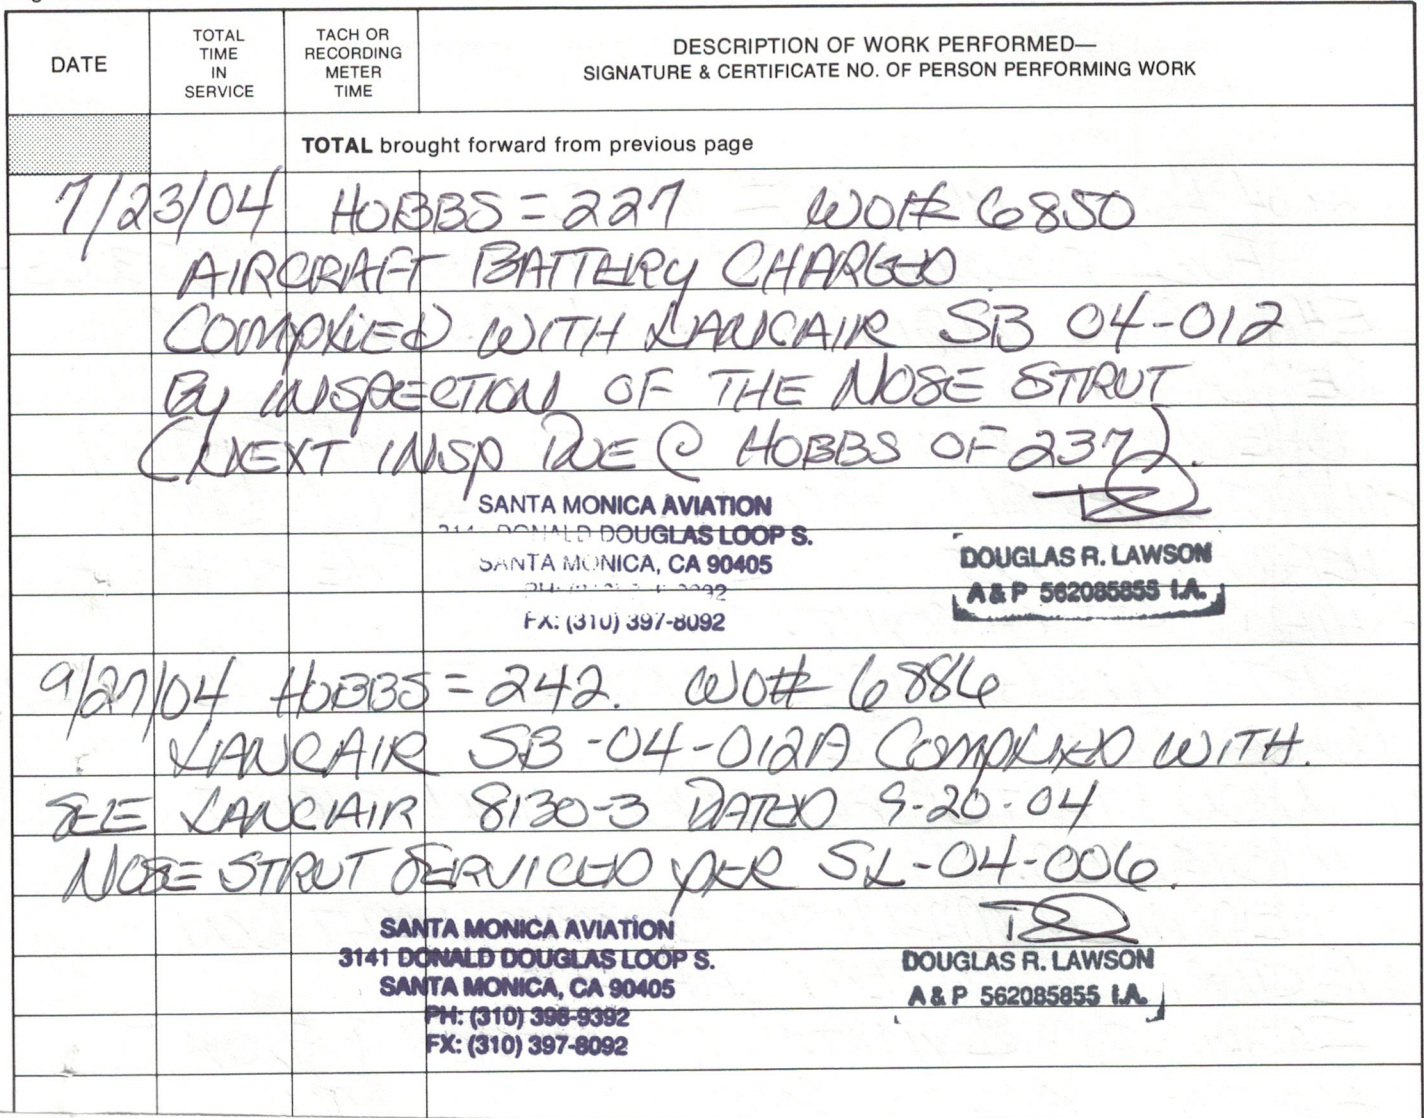 DATE
TOTAL TIME IN SERVICE
TACH OR RECORDING METER TIME
DESCRIPTION OF WORK PERFORMED—
SIGNATURE & CERTIFICATE NO. OF PERSON PERFORMING WORK
TOTAL brought forward from previous page
7/23/04 HOBBS = 227 WO# 6850
AIRCRAFT BATTERY CHARGED
COMPLIED WITH LANCAIR SB 04-012
By INSPECTION OF THE NOSE STRUT
(NEXT INSP DUE @ HOBBS OF 237).
SANTA MONICA AVIATION
DONALD DOUGLAS LOOP S.
SANTA MONICA, CA 90405
FX: (310) 397-8092
DOUGLAS R. LAWSON
A & P 562085855 I.A.
9/27/04 HOBBS = 242. WO# 6886
LANCAIR SB-04-012A COMPLIED WITH.
SEE LANCAIR 8130-3 DATED 9-20-04
NOSE STRUT SERVICED PER SL-04-006.
SANTA MONICA AVIATION
3141 DONALD DOUGLAS LOOP S.
SANTA MONICA, CA 90405
PH: (310) 396-9392
FX: (310) 397-8092
DOUGLAS R. LAWSON
A & P 562085855 I.A.